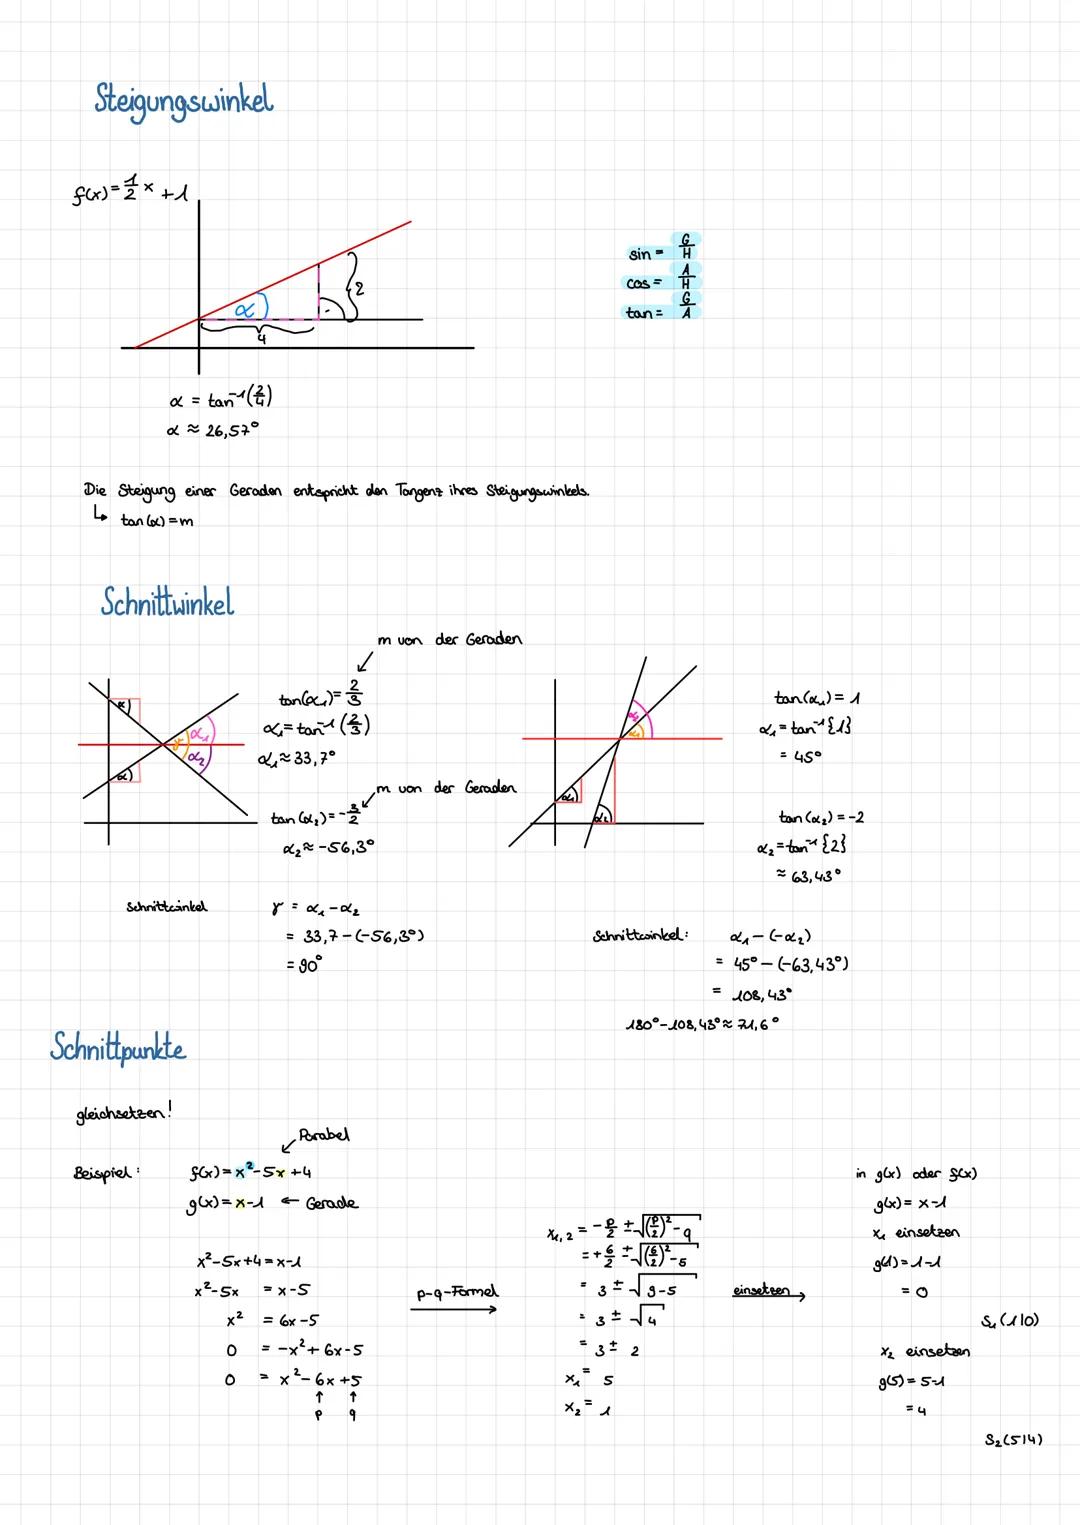 Steigungswinkel
f(x)=1/2 x +1
α
2
4
sin = G/H
cos = A/H
tan = G/A
α = tan⁻¹(2/4)
α ≈ 26,57°
Die Steigung einer Geraden entspricht den Tangenz ihres Steigungswinkels.
↳ tan(α)=m
Schnittwinkel
m von der Geraden
tan(α₁)= 2/3
α₁=tan⁻¹(2/3)
α₁≈33,7°
m von der Geraden
tan(α₂)=-3/2
α₂≈ -56,3°
α
α
γ
α₁
α₂
Schnittwinkel
γ = α₁-α₂
= 33,7-(-56,3°)
= 90°
α₁
α₁
α₂
tan(α₁)= 1
α₁=tan⁻¹{1}
= 45°
tan(α₂)=-2
α₂=tan⁻¹{2}
≈ 63,43°
Schnittwinkel: α₁-(-α₂)
= 45°-(-63,43°)
= 108,43°
180°-108,43°≈71,6°
Schnittpunkte
gleichsetzen!
Parabel
Beispiel: f(x)=x²-5x+4
g(x)=x-1 ← Gerade
x²-5x+4=x-1
x²-5x = x-5
x² = 6x-5
0 = -x²+6x-5
0 = x²-6x+5
↑ ↑
p q
p-q-Formel
x₁,₂ = -p/2 ± √((p/2)²-q)
= +6/2 ± √((6/2)²-5)
= 3 ± √(9-5)
= 3 ± √4
= 3 ± 2
x₁ = 5
x₂ = 1
einsetzen
in g(x) oder f(x)
g(x)= x-1
x₁ einsetzen
g(1)=1-1
= 0
S₁(1|0)
x₂ einsetzen
g(5)=5-1
= 4
S₂(5|4)